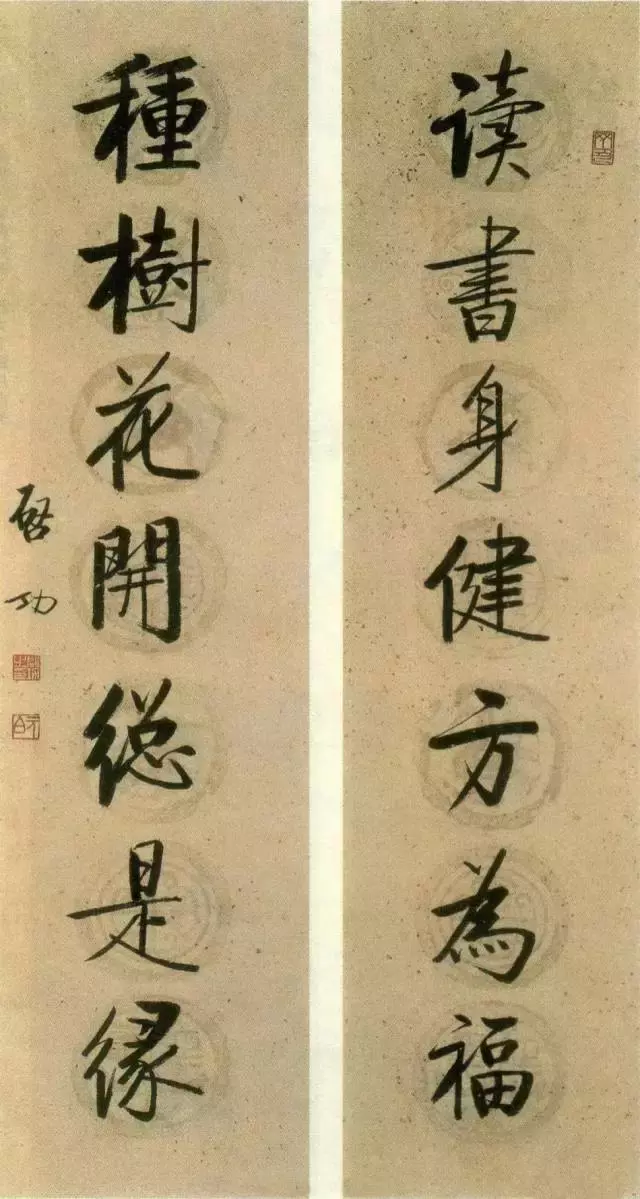 读書身健方為福
種樹花開總是緣
啓功